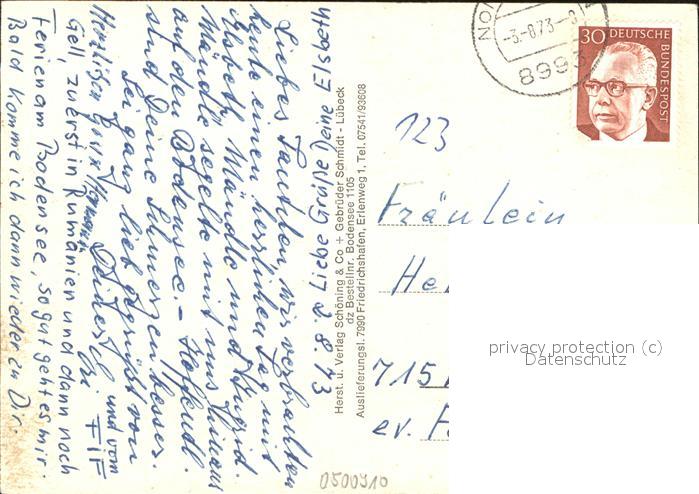 Liebes Tantchen, wir verbrachten
heute einen herrlichen Tag mit
Elsbeth Mändle und Ingrid.
Mändle segelte mit uns hinaus
auf den Bodensee. - Hoffentl.
sind Deine Schmerzen besser.
Sei ganz lieb gegrüßt von
Herzlichen Gruß
und vom
FiF
Gell, zuerst in Rumänien und dann noch
Ferien am Bodensee, so gut geht es mir.
Bald komme ich dann wieder zu Dir.
2.8.73 Liebe Grüße Deine Elsbeth
Herst. u. Verlag Schöning & Co + Gebrüder Schmidt - Lübeck
dz Bestellnr. Bodensee 1105
Auslieferungsl. 7990 Friedrichshafen, Erlenweg 1, Tel. 07541/93608
-3.-8.73-
8993
30 DEUTSCHE
BUNDESPOST
123
Fräulein
He
715
ev. F
privacy protection (c)
Datenschutz
0500910